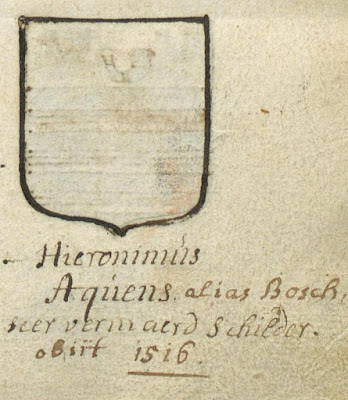 Hieronimús
Aqúens alias Bosch,
seer vermaerd Schilder.
obiit 1516.